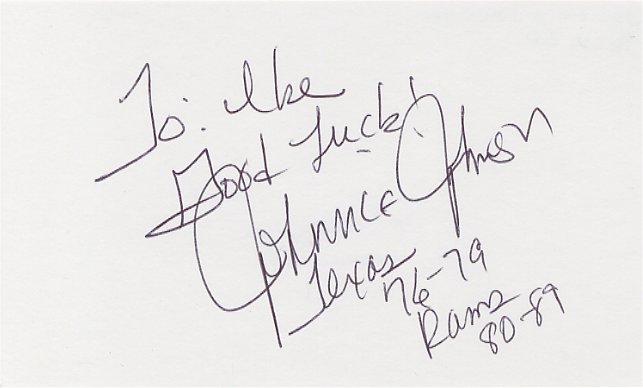 To: Ike
Good Luck!
Johnnie Johnson
Texas
76-79
Rams
80-89